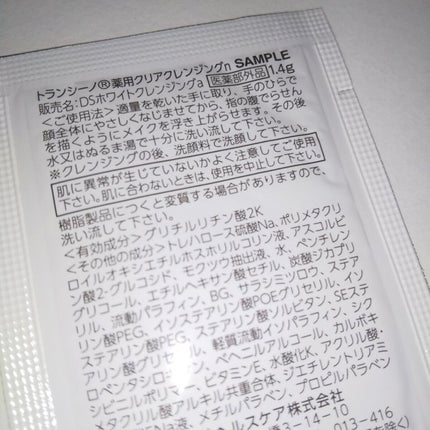 トランシーノ®薬用クリアクレンジングn SAMPLE
販売名:DSホワイトクレンジングa 医薬部外品 1.4g
<ご使用法>適量を乾いた手に取り、手のひらで
顔全体にやさしくなじませてから、指の腹でらせん
を描くようにメイクを浮き上がらせます。その後
水又はぬるま湯で十分に洗い流して下さい。
※クレンジングの後、洗顔料で洗顔して下さい。
肌に異常が生じていないかよく注意してご使用
下さい。肌に合わないときは、使用を中止して下さい。
樹脂製品につくと変質する場合がありますので、
洗い流して下さい。
<有効成分>グリチルリチン酸2K
<その他の成分>トレハロース硫酸Na、ポリメタクリ
ロイルオキシエチルホスホリルコリン液、アスコルビ
ン酸2-グルコシド、モクツウ抽出液、水、ペンチレン
グリコール、エチルヘキサン酸セチル、炭酸ジカプリ
リル、流動パラフィン、BG、サラシミツロウ、ステア
リン酸PEG、イソステアリン酸POEグリセリル、イソ
ステアリン酸PEG、ステアリン酸ソルビタン、SEステ
アリン酸グリセリル、軽質流動イソパラフィン、シク
ロペンタシロキサン、ベヘニルアルコール、カルボキ
シビニルポリマー、ビタミンE、水酸化K、アクリル酸・
メタクリル酸アルキル共重合体、ジエチレントリアミ
液、メチルパラベン、プロピルパラベン
ヘルスケア株式会社
3-14-10
013-416
を除く)